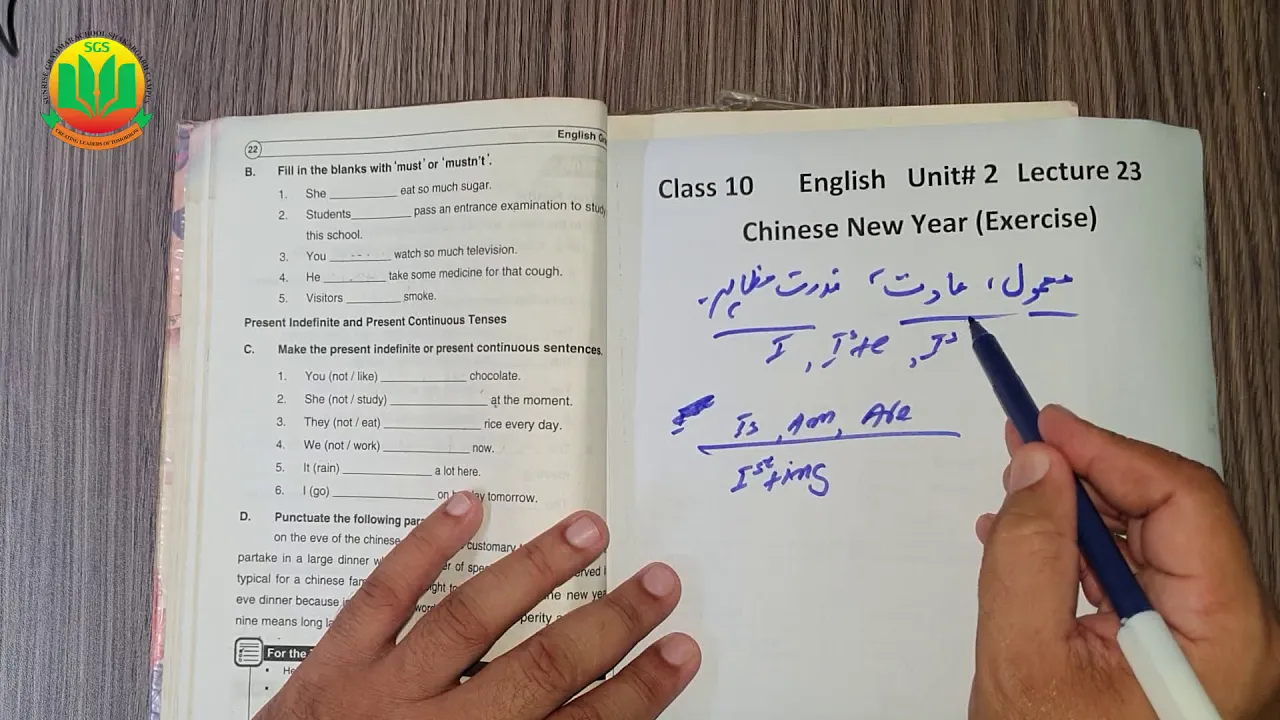 SUNRISE GRAMMAR SCHOOL SHAKARGARH CAMPUS
SGS
CREATING LEADERS OF TOMORROW
22
English
B. Fill in the blanks with 'must' or 'mustn't'.
1. She __________ eat so much sugar.
2. Students_________ pass an entrance examination to study
this school.
3. You _________ watch so much television.
4. He _________ take some medicine for that cough.
5. Visitors ________ smoke.
Present Indefinite and Present Continuous Tenses
C. Make the present indefinite or present continuous sentences.
1. You (not / like) ____________ chocolate.
2. She (not / study) ______________ at the moment.
3. They (not / eat) ______________ rice every day.
4. We (not / work) ____________ now.
5. It (rain) _____________ a lot here.
6. I (go) _______________ on tomorrow.
D. Punctuate the following
on the eve of the chinese customary
partake in a large dinner of
typical for a chinese
eve dinner because the new
nine means long
For the
Class 10 English Unit# 2 Lecture 23
Chinese New Year (Exercise)
معمول، عادت، قدرت مظاہر۔
I, Ist+e, Is
Is, Am, Are
Ist+ing